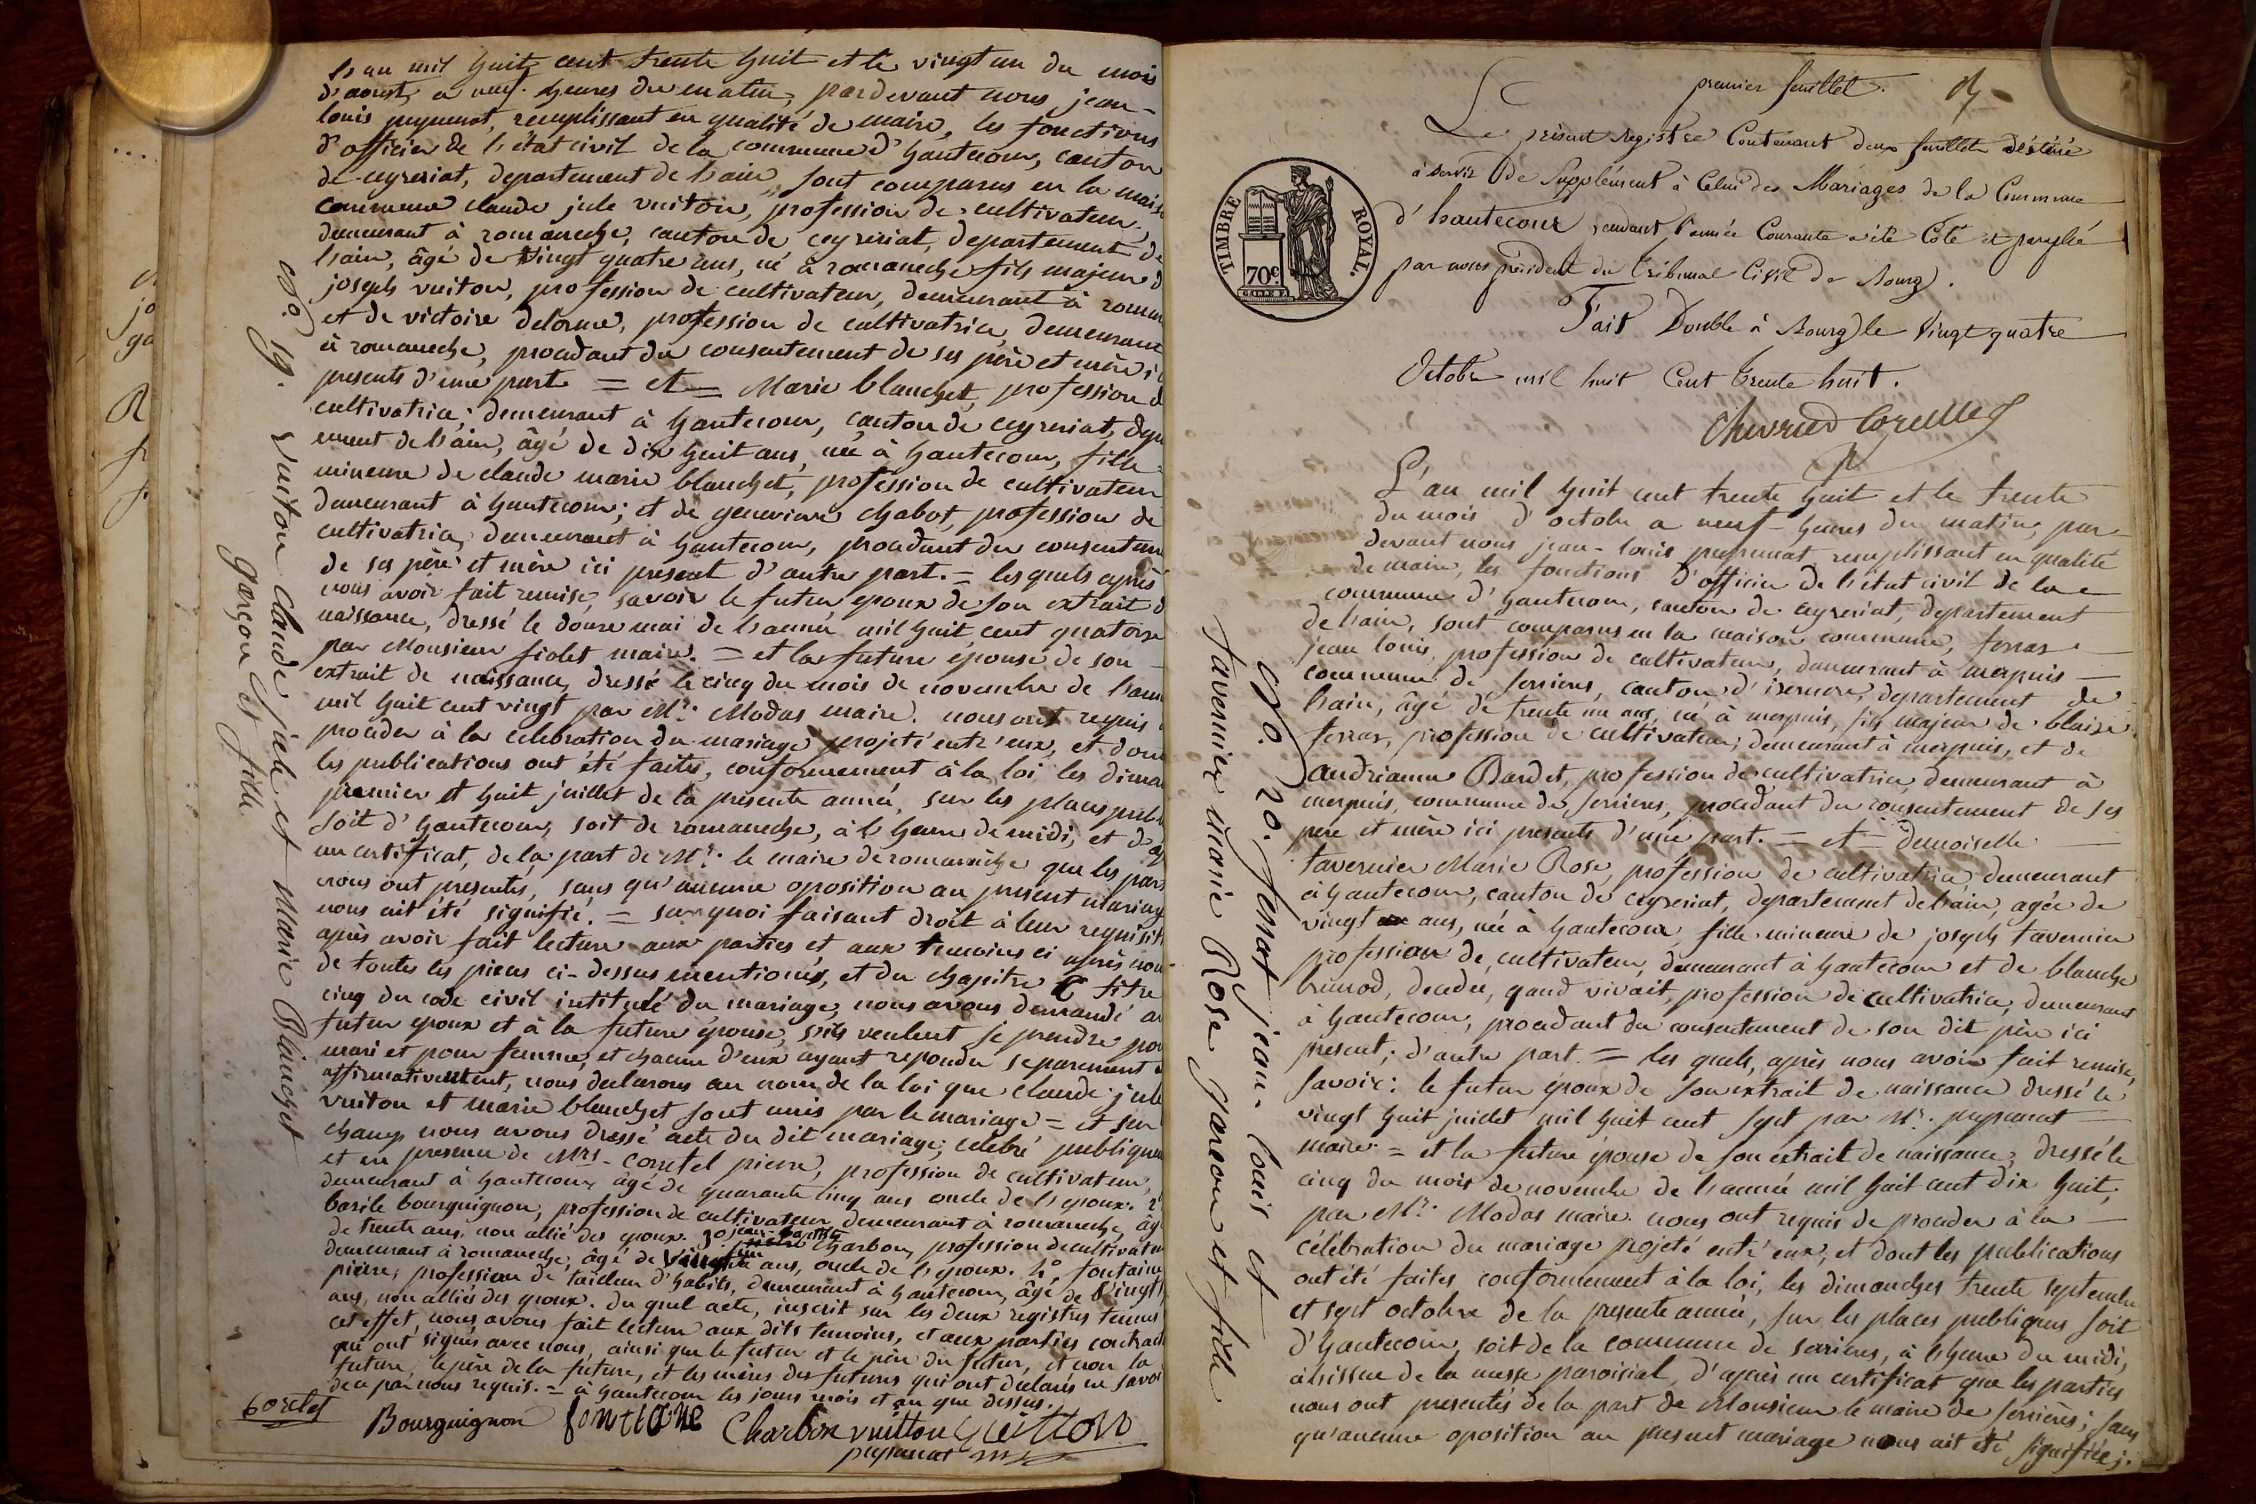 L'an mil huit cent trente huit et le vingt un du mois
d'aoust, a neuf heures du matin, pardevant nous jean-
louis peysenat, remplissant en qualité de maire, les fonctions
d'officier de l'état civil de la commune d'hautecour, canton
de ceyreriat, departement de l'ain, sont comparus en la maison
commune claude jule vuiton, profession de cultivateur,
demeurant à romaneche, canton de ceyreriat, departement de
l'ain, âgé de vingt quatre ans, né à romaneche fils majeur d
joseph vuiton, profession de cultivateur, demeurant à roman
et de victoire delorme, profession de cultivatrice, demeurant
à romaneche, procedant du consentement de ses père et mère i
presents d'une part = et = Marie blanchet, profession d
cultivatrice; demeurant à hautecour, canton de ceyreriat, depa
ement de l'ain, âgé de dix huit ans, née à hautecour, fille
mineure de claude marie blanchet, profession de cultivateur
demeurant à hautecour; et de genevieve chabot, profession de
cultivatrice, demeurant à hautecour, procedant du consentem
de ses père et mère ici present d'autre part. = les quels après
nous avoir fait remise, savoir le futur epoux de son extrait d
naissance, dressé le douze mai de l'année mil huit cent quatorze
par Monsieur fiolet maire. = et la future épouse de son
extrait de naissance, dressé le cinq du mois de novembre de l'ann
mil huit cent vingt par Mr. Modas maire. nous ont requis
proceder à la celebration du mariage projeté entr'eux, et dont
les publications ont été faites, conformement à la loi les diman
premier et huit juillet de la presente année, sur les places publ
soit d'hautecour, soit de romaneche, à l'heure de midi, et d'ap
un certificat, de la part de Mr. le maire de romaneche que les part
nous ont presentés, sans qu'aucune oposition au present mariag
nous ait été signifié. = sur quoi faisant droit à leur requisit
après avoir fait lecture aux parties et aux temoins ci après nom
de toutes les pieces ci-dessus mentionées, et du chapitre 6 titre
cinq du code civil intitulé du mariage, nous avons demandé au
futur epoux et à la future épouse, s'ils veulent se prendre pou
mari et pour femme, et chacun d'eux ayant repondu separement
affirmativement, nous declarons au nom de la loi que claude jule
vuiton et marie blanchet sont unis par le mariage = et sur
champ nous avons dressé acte du dit mariage; celebré publique
et en presence de Mrs. corretel pierre, profession de cultivateur,
demeurant à hautecour, âgé de quarante cinq ans oncle de l'epoux. 2°
basile bourguignon, profession de cultivateur demeurant à romaneche, âgé
de trente ans, non allié des epoux. 3° jean-baptiste charbon, profession de cultivateur
demeurant à romaneche, âgé de vingt un ans, oncle de l'epoux. 4°, fontaine
pierre, profession de tailleur d'habits, demeurant à hautecour, âgé de vingt
ans, non alliés des epoux. du quel acte, inscrit sur les deux registres tenus
cet effet, nous avons fait lecture aux dits temoins, et aux parties contract
qui ont signés avec nous, ainsi que le futur et le père du futur, et non la
future, le père de la future, et les mères des futurs qui ont declarés ne savoir
de ce par nous requis. = à hautecour les jours mois et an que dessus.
Bourguignon fontaine Charbon vuitton vuitton
peysenat
No. 19. Vuiton claude jule et Marie Blanchet
garçon et fille
premier feuillet.
Le présent registre Contenant deux feuillets destiné
à servir de Supplément à Celui des Mariages de la Commune
d'hautecour pendant l'année Courante a été Coté et paraphé
par nous président du tribunal Civil de Bourg.
Fait Double à Bourg le Vingt quatre
Octobre mil huit Cent trente huit.
TIMBRE ROYAL.
70c
L'an mil huit cent trente huit et le trente
du mois d'octobre a neuf heures du matin, par-
devant nous jean-louis peysenat remplissant en qualité
de maire, les fonctions d'officier de l'état civil de la
commune d'hautecour, canton de ceyreriat, departement
de l'ain, sont comparus en la maison commune, ferrar
jean louis, profession de cultivateur, demeurant à merpuis
commune de serrieres, canton d'izernore, departement de
l'ain, âgé de trente un ans, né à merpuis, fils majeur de blaize
ferrar, profession de cultivateur, demeurant à merpuis, et de
andrianne Bardet, profession de cultivatrice, demeurant à
merpuis, commune de serrieres, procedant du consentement de ses
père et mère ici presents d'une part. = et = demoiselle
tavernier Marie Rose, profession de cultivatrice demeurant
à hautecour, canton de ceyreriat, departement de l'ain, agée de
vingt ans, née à hautecour, fille mineure de joseph tavernier
profession de cultivateur, demeurant à hautecour et de blanche
brunod, decedée, quand vivait, profession de cultivatrice, demeurant
à hautecour, procedant du consentement de son dit père ici
present; d'autre part. = les quels, après nous avoir fait remise,
savoir: le futur époux de son extrait de naissance dressé le
vingt huit juillet mil huit cent sept par Mr. peysenat
maire = et la future épouse de son extrait de naissance, dressé le
cinq du mois de novembre de l'année mil huit cent dix huit,
par Mr. Modas maire. nous ont requis de proceder à la
célébration du mariage projeté entr'eux, et dont les publications
ont été faites conformement à la loi, les dimanches trente septembre
et sept octobre de la presente année, sur les places publiques soit
d'hautecour, soit de la commune de serrieres, à l'heure du midi,
à l'issue de la messe paroisial, d'après un certificat que les parties
nous ont presentés de la part de Monsieur le maire de serrières; sans
qu'aucune oposition au present mariage nous ait été signifiée;
No. 20. ferrar jean-louis et
tavernier Marie Rose garçon et fille